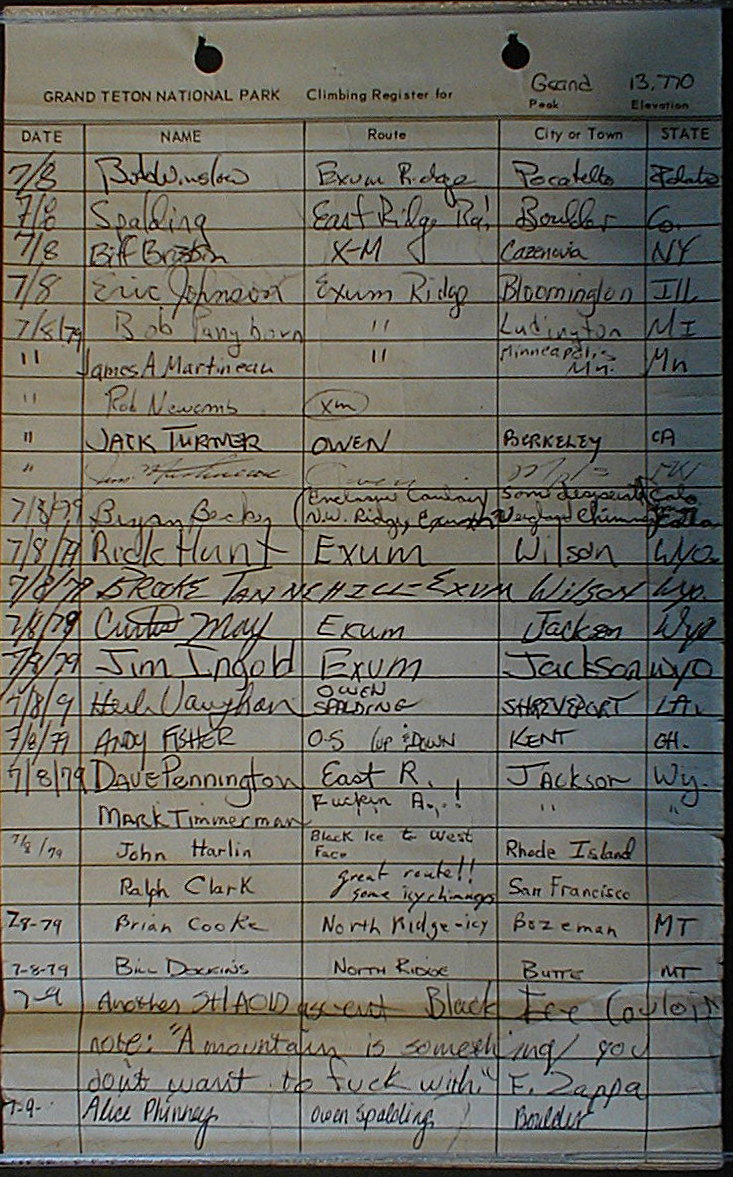 Grand 13,770
GRAND TETON NATIONAL PARK Climbing Register for Peak Elevation
DATE NAME Route City or Town STATE
7/8 Bob Winslow Exum Ridge Pocatello Idaho
7/8 Spalding East Ridge Boulder Co.
7/8 Biff X-M Cazenovia NY
7/8 Eric Johnson Exum Ridge Bloomington ILL
7/8/79 Bob Pangborn " Ludington MI
" James A Martineau " Minneapolis Mn. Mn
" Rob Newcomb xm
" JACK TURNER OWEN BERKELEY CA
"
7/8/79 Bryan Becker (Enclosure Couloir some desperate Colo
N.W. Ridge, Exum
7/8/79 Rick Hunt Exum Wilson Wyo.
7/8/79 BROOKE TANNEHILL - EXUM WILSON Wyo.
7/8/79 Curtis May Exum Jackson Wyo
7/8/79 Jim Ingold Exum Jackson Wyo
7/8/9 Herb Vaughan OWEN SPALDING SHREVEPORT LA.
7/8/79 ANDY FISHER O-S (up & DOWN KENT OH.
7/8/79 DAVE Pennington East R. JACKSON Wy.
MARK Timmerman Fuckin A...! " "
7/8/79 John Harlin Black Ice to West Face Rhode Island
Ralph Clark great route!! some icy chimneys San Francisco
7-8-79 Brian Cooke North Ridge-icy Bozeman MT
7-8-79 BILL DOCKINS NORTH RIDGE BUTTE MT
7-9 Another ascent Black Ice Couloir
note: "A mountain is something you
don't want to fuck with." F. Zappa
7-9- Alice Phinney Owen Spalding Boulder